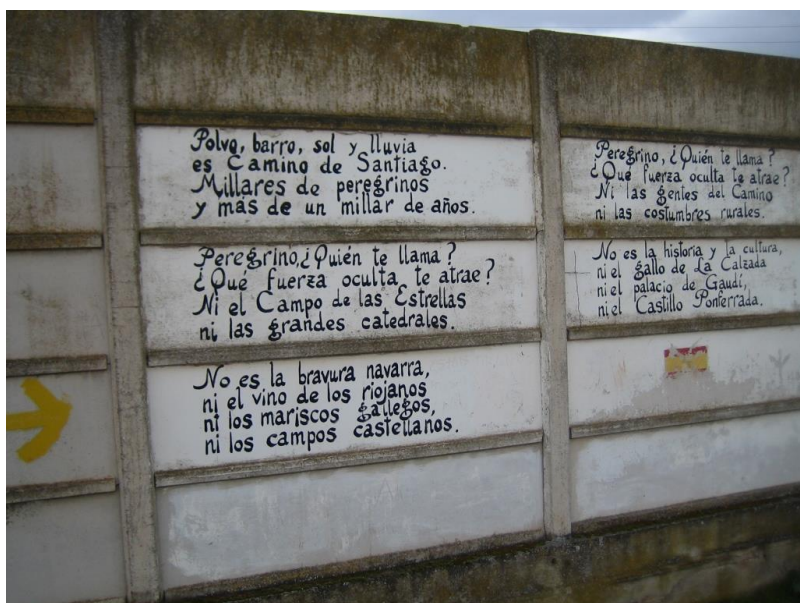 Polvo, barro, sol y lluvia
es Camino de Santiago.
Millares de peregrinos
y más de un millar de años.
Peregrino, ¿Quién te llama?
¿Qué fuerza oculta te atrae?
Ni el Campo de las Estrellas
ni las grandes catedrales.
No es la bravura navarra,
ni el vino de los riojanos
ni los mariscos gallegos,
ni los campos castellanos.
Peregrino, ¿Quién te llama?
¿Qué fuerza oculta te atrae?
Ni las gentes del Camino
ni las costumbres rurales.
No es la historia y la cultura,
ni el gallo de La Calzada
ni el palacio de Gaudí,
ni el Castillo Ponferrada.